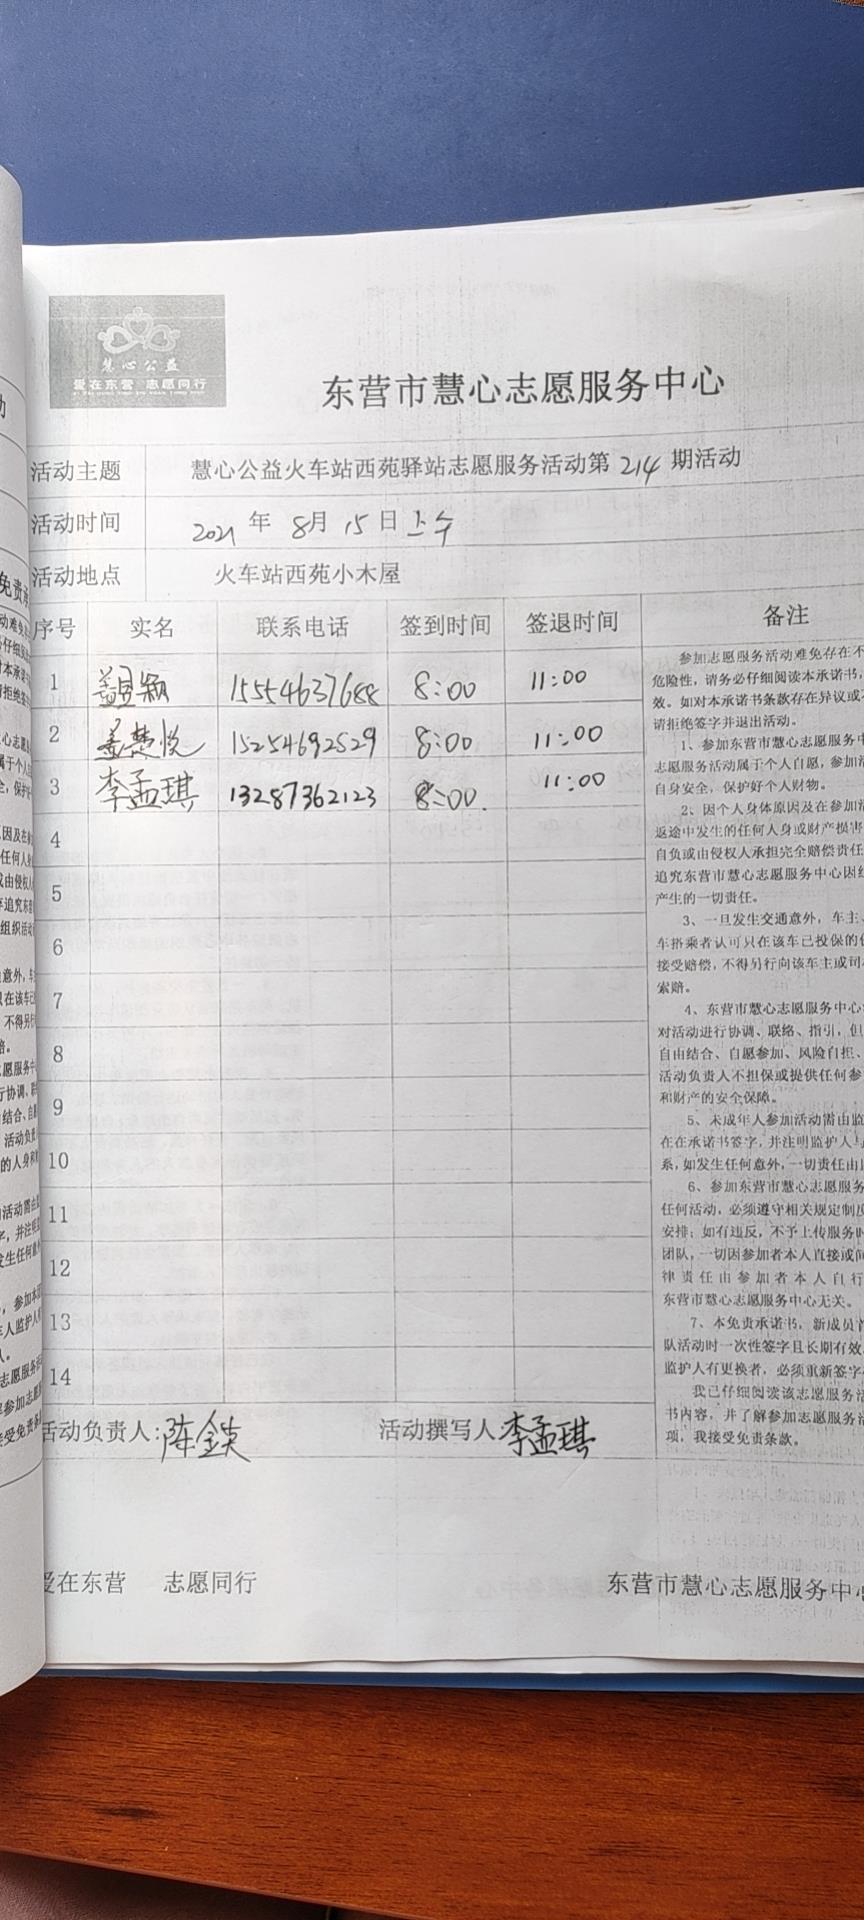 慧心公益
爱在东营 志愿同行
东营市慧心志愿服务中心
活动主题 慧心公益火车站西苑驿站志愿服务活动第 214 期活动
活动时间 2021 年 8月 15日上午
活动地点 火车站西苑小木屋
序号 实名 联系电话 签到时间 签退时间 备注
1 15554637688 8:00 11:00
2 盖慧悦 15254692529 8:00 11:00
3 李孟琪 13287362123 8:00. 11:00
4
5
6
7
8
9
10
11
12
13
14
参加志愿服务活动难免存在不
危险性，请务必仔细阅读本承诺书，
效。如对本承诺书条款存在异议或不
请拒绝签字并退出活动。
1、参加东营市慧心志愿服务中
志愿服务活动属于个人自愿，参加活
自身安全，保护好个人财物。
2、因个人身体原因及在参加活
返途中发生的任何人身或财产损害
自负或由侵权人承担完全赔偿责任
追究东营市慧心志愿服务中心因组
产生的一切责任。
3、一旦发生交通意外，车主、
车搭乘者认可只在该车已投保的
接受赔偿，不得另行向该车主或司
索赔。
4、东营市慧心志愿服务中心
对活动进行协调、联络、指引，但
自由结合、自愿参加、风险自担、
活动负责人不担保或提供任何参
和财产的安全保障。
5、未成年人参加活动需由监
在在承诺书签字，并注明监护人与
系，如发生任何意外，一切责任由
6、参加东营市慧心志愿服务
任何活动，必须遵守相关规定制度
安排；如有违反，不予上传服务时
团队，一切因参加者本人直接或间
律责任由参加者本人自行
东营市慧心志愿服务中心无关。
7、本免责承诺书，新成员首
队活动时一次性签字且长期有效
监护人有更换者，必须重新签字
我已仔细阅读该志愿服务活
书内容，并了解参加志愿服务活
项，我接受免责条款。
活动负责人: 陈 活动撰写人 李孟琪
爱在东营 志愿同行 东营市慧心志愿服务中心